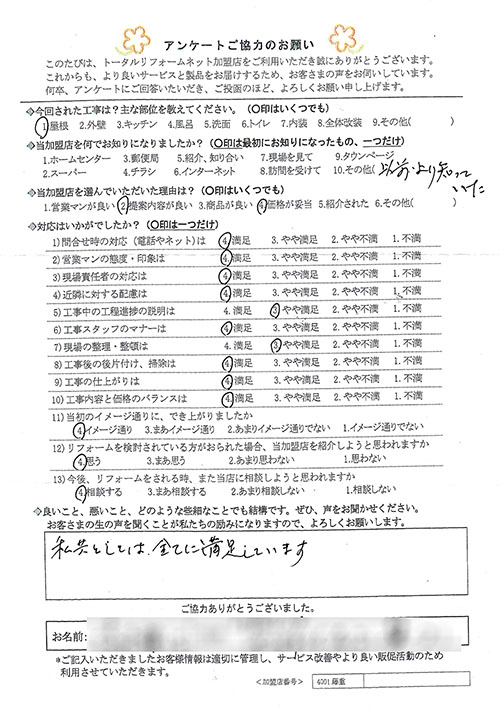 アンケートご協力のお願い
このたびは、トータルリフォームネット加盟店をご利用いただき誠にありがとうございます。
これからも、より良いサービスと製品をお届けするため、お客さまの声をお伺いしています。
何卒、アンケートにご回答いただき、ご投函のほど、よろしくお願い申し上げます。
◆今回された工事は？主な部位を教えてください。（〇印はいくつでも）
1.屋根 2.外壁 3.キッチン 4.風呂 5.洗面 6.トイレ 7.内装 8.全体改装 9.その他( )
◆当加盟店を何でお知りになりましたか？（〇印は最初にお知りになったもの、一つだけ）
1.ホームセンター 3.郵便局 5.紹介、知り合い 7.現場を見て 9.タウンページ
2.スーパー 4.チラシ 6.インターネット 8.訪問を受けて 10.その他( 以前より知って
いた
◆当加盟店を選んでいただいた理由は？（〇印はいくつでも）
1.営業マンが良い 2.提案内容が良い 3.商品が良い 4.価格が妥当 5.紹介された 6.その他( )
◆対応はいかがでしたか？（〇印は一つだけ）
1)問合せ時の対応（電話やネット）は 4.満足 3.やや満足 2.やや不満 1.不満
2)営業マンの態度・印象は 4.満足 3.やや満足 2.やや不満 1.不満
3)現場責任者の対応は 4.満足 3.やや満足 2.やや不満 1.不満
4)近隣に対する配慮は 4.満足 3.やや満足 2.やや不満 1.不満
5)工事中の工程進捗の説明は 4.満足 3.やや満足 2.やや不満 1.不満
6)工事スタッフのマナーは 4.満足 3.やや満足 2.やや不満 1.不満
7)現場の整理・整頓は 4.満足 3.やや満足 2.やや不満 1.不満
8)工事後の後片付け、掃除は 4.満足 3.やや満足 2.やや不満 1.不満
9)工事の仕上がりは 4.満足 3.やや満足 2.やや不満 1.不満
10)工事内容と価格のバランスは 4.満足 3.やや満足 2.やや不満 1.不満
11)当初のイメージ通りに、でき上がりましたか
4.イメージ通り 3.まあイメージ通り 2.あまりイメージ通りでない 1.イメージ通りでない
12)リフォームを検討されている方がおられた場合、当加盟店を紹介しようと思われますか
4.思う 3.まあ思う 2.あまり思わない 1.思わない
13)今後、リフォームをされる時、また当店に相談しようと思われますか
4.相談する 3.まあ相談する 2.あまり相談しない 1.相談しない
◆良いこと、悪いこと、どのような些細なことでも結構です。ぜひ、声をお聞かせください。
お客さまの生の声を聞くことが私たちの励みになりますので、よろしくお願いします。
私共としては、全てに満足しています
ご協力ありがとうございました。
お名前:
*ご記入いただきましたお客様情報は適切に管理し、サービス改善やより良い販促活動のため
利用させていただきます。
<加盟店番号> 4001藤重